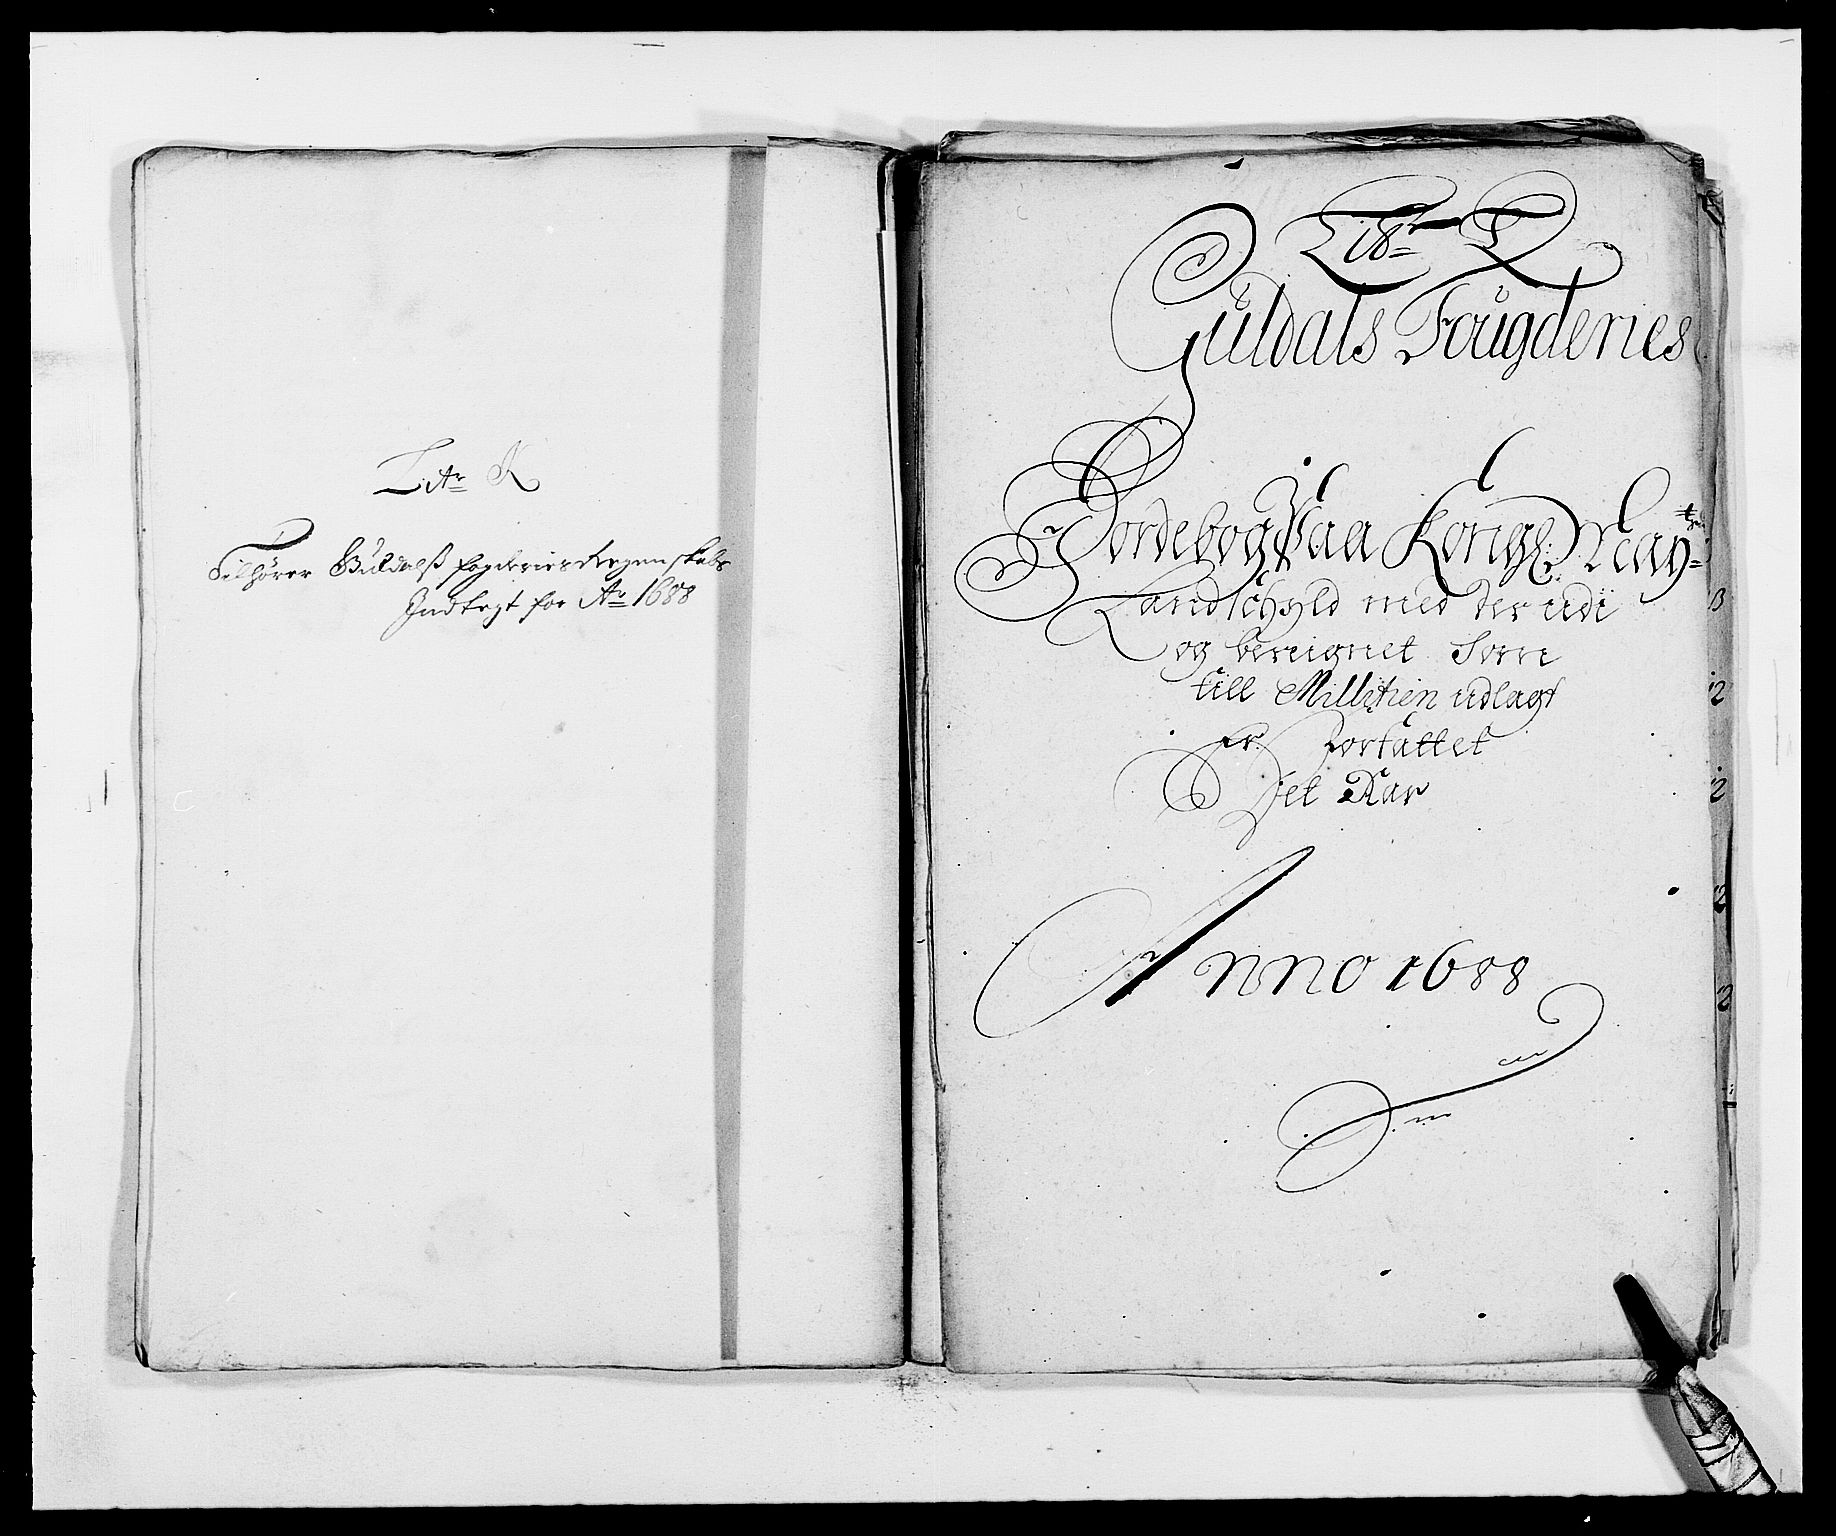 Litr K
Tilhører Guldalß fogderies Regenskabs
Indtegt for Ao 1688
Litr L
Guldals Fougderies
Jordebog Paa Kongl: May:ts
Landschyld med der udi
og bereignet Som
till Millitien udlagt
Er Forfattet
Det Aar
Anno 1688